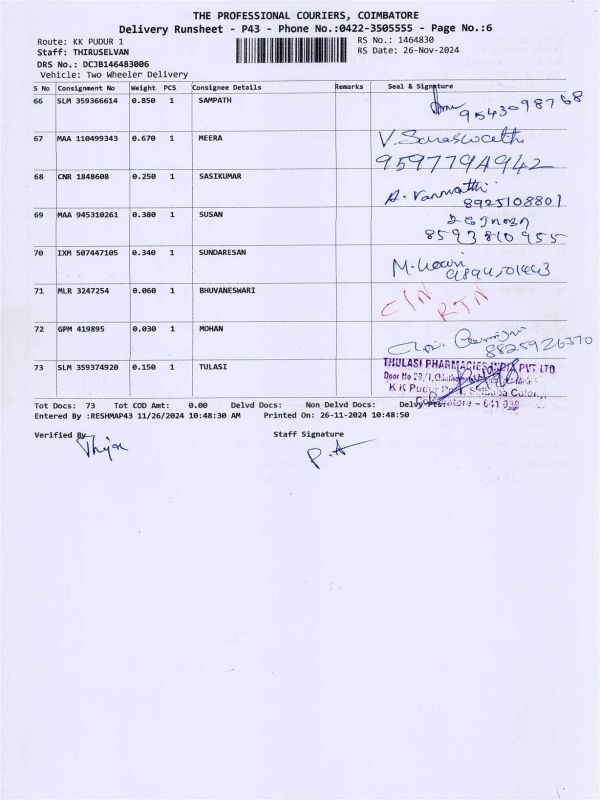 THE PROFESSIONAL COURIERS, COIMBATORE
Delivery Runsheet - P43 - Phone No.:0422-3505555 - Page No.:6
Route: KK PUDUR 1 RS No.: 1464830
Staff: THIRUSELVAN RS Date: 26-Nov-2024
DRS No.: DCJB146483006
Vehicle: Two Wheeler Delivery
S No Consignment No Weight PCS Consignee Details Remarks Seal & Signature
66 SLM 359366614 0.850 1 SAMPATH 9543098768
67 MAA 110499343 0.670 1 MEERA V. Saraswathi
9597794942
68 CNR 1848608 0.250 1 SASIKUMAR A.
8925108801
69 MAA 945310261 0.380 1 SUSAN
8593810955
70 IXM 507447105 0.340 1 SUNDARESAN
71 MLR 3247254 0.060 1 BHUVANESWARI C/N RTN
72 GPM 419895 0.030 1 MOHAN
8825926370
73 SLM 359374920 0.150 1 TULASI THULASI PHARMACIES INDIA PVT LTD
Tot Docs: 73 Tot COD Amt: 0.00 Delvd Docs: Non Delvd Docs: Delvy
Entered By :RESHMAP43 11/26/2024 10:48:30 AM Printed On: 26-11-2024 10:48:50
Verified By Staff Signature
P. A